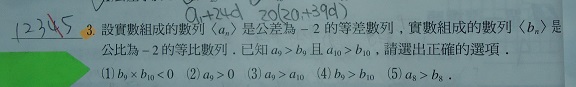 a₁+24d 20(2a₁+39d)
12345 3. 設實數組成的數列〈aₙ〉是公差為 −2 的等差數列，實數組成的數列〈bₙ〉是
公比為 −2 的等比數列．已知 a₉ > b₉ 且 a₁₀ > b₁₀，請選出正確的選項．
(1) b₉ × b₁₀ < 0 (2) a₉ > 0 (3) a₉ > a₁₀ (4) b₉ > b₁₀ (5) a₈ > b₈．